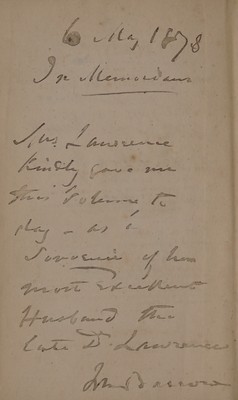 6 May 1878
In Memoriam
Mrs. Lawrence
kindly gave me
this Volume to
day - as a
Souvenir of her
most Excellent
Husband the
late Dr. Lawrence
John